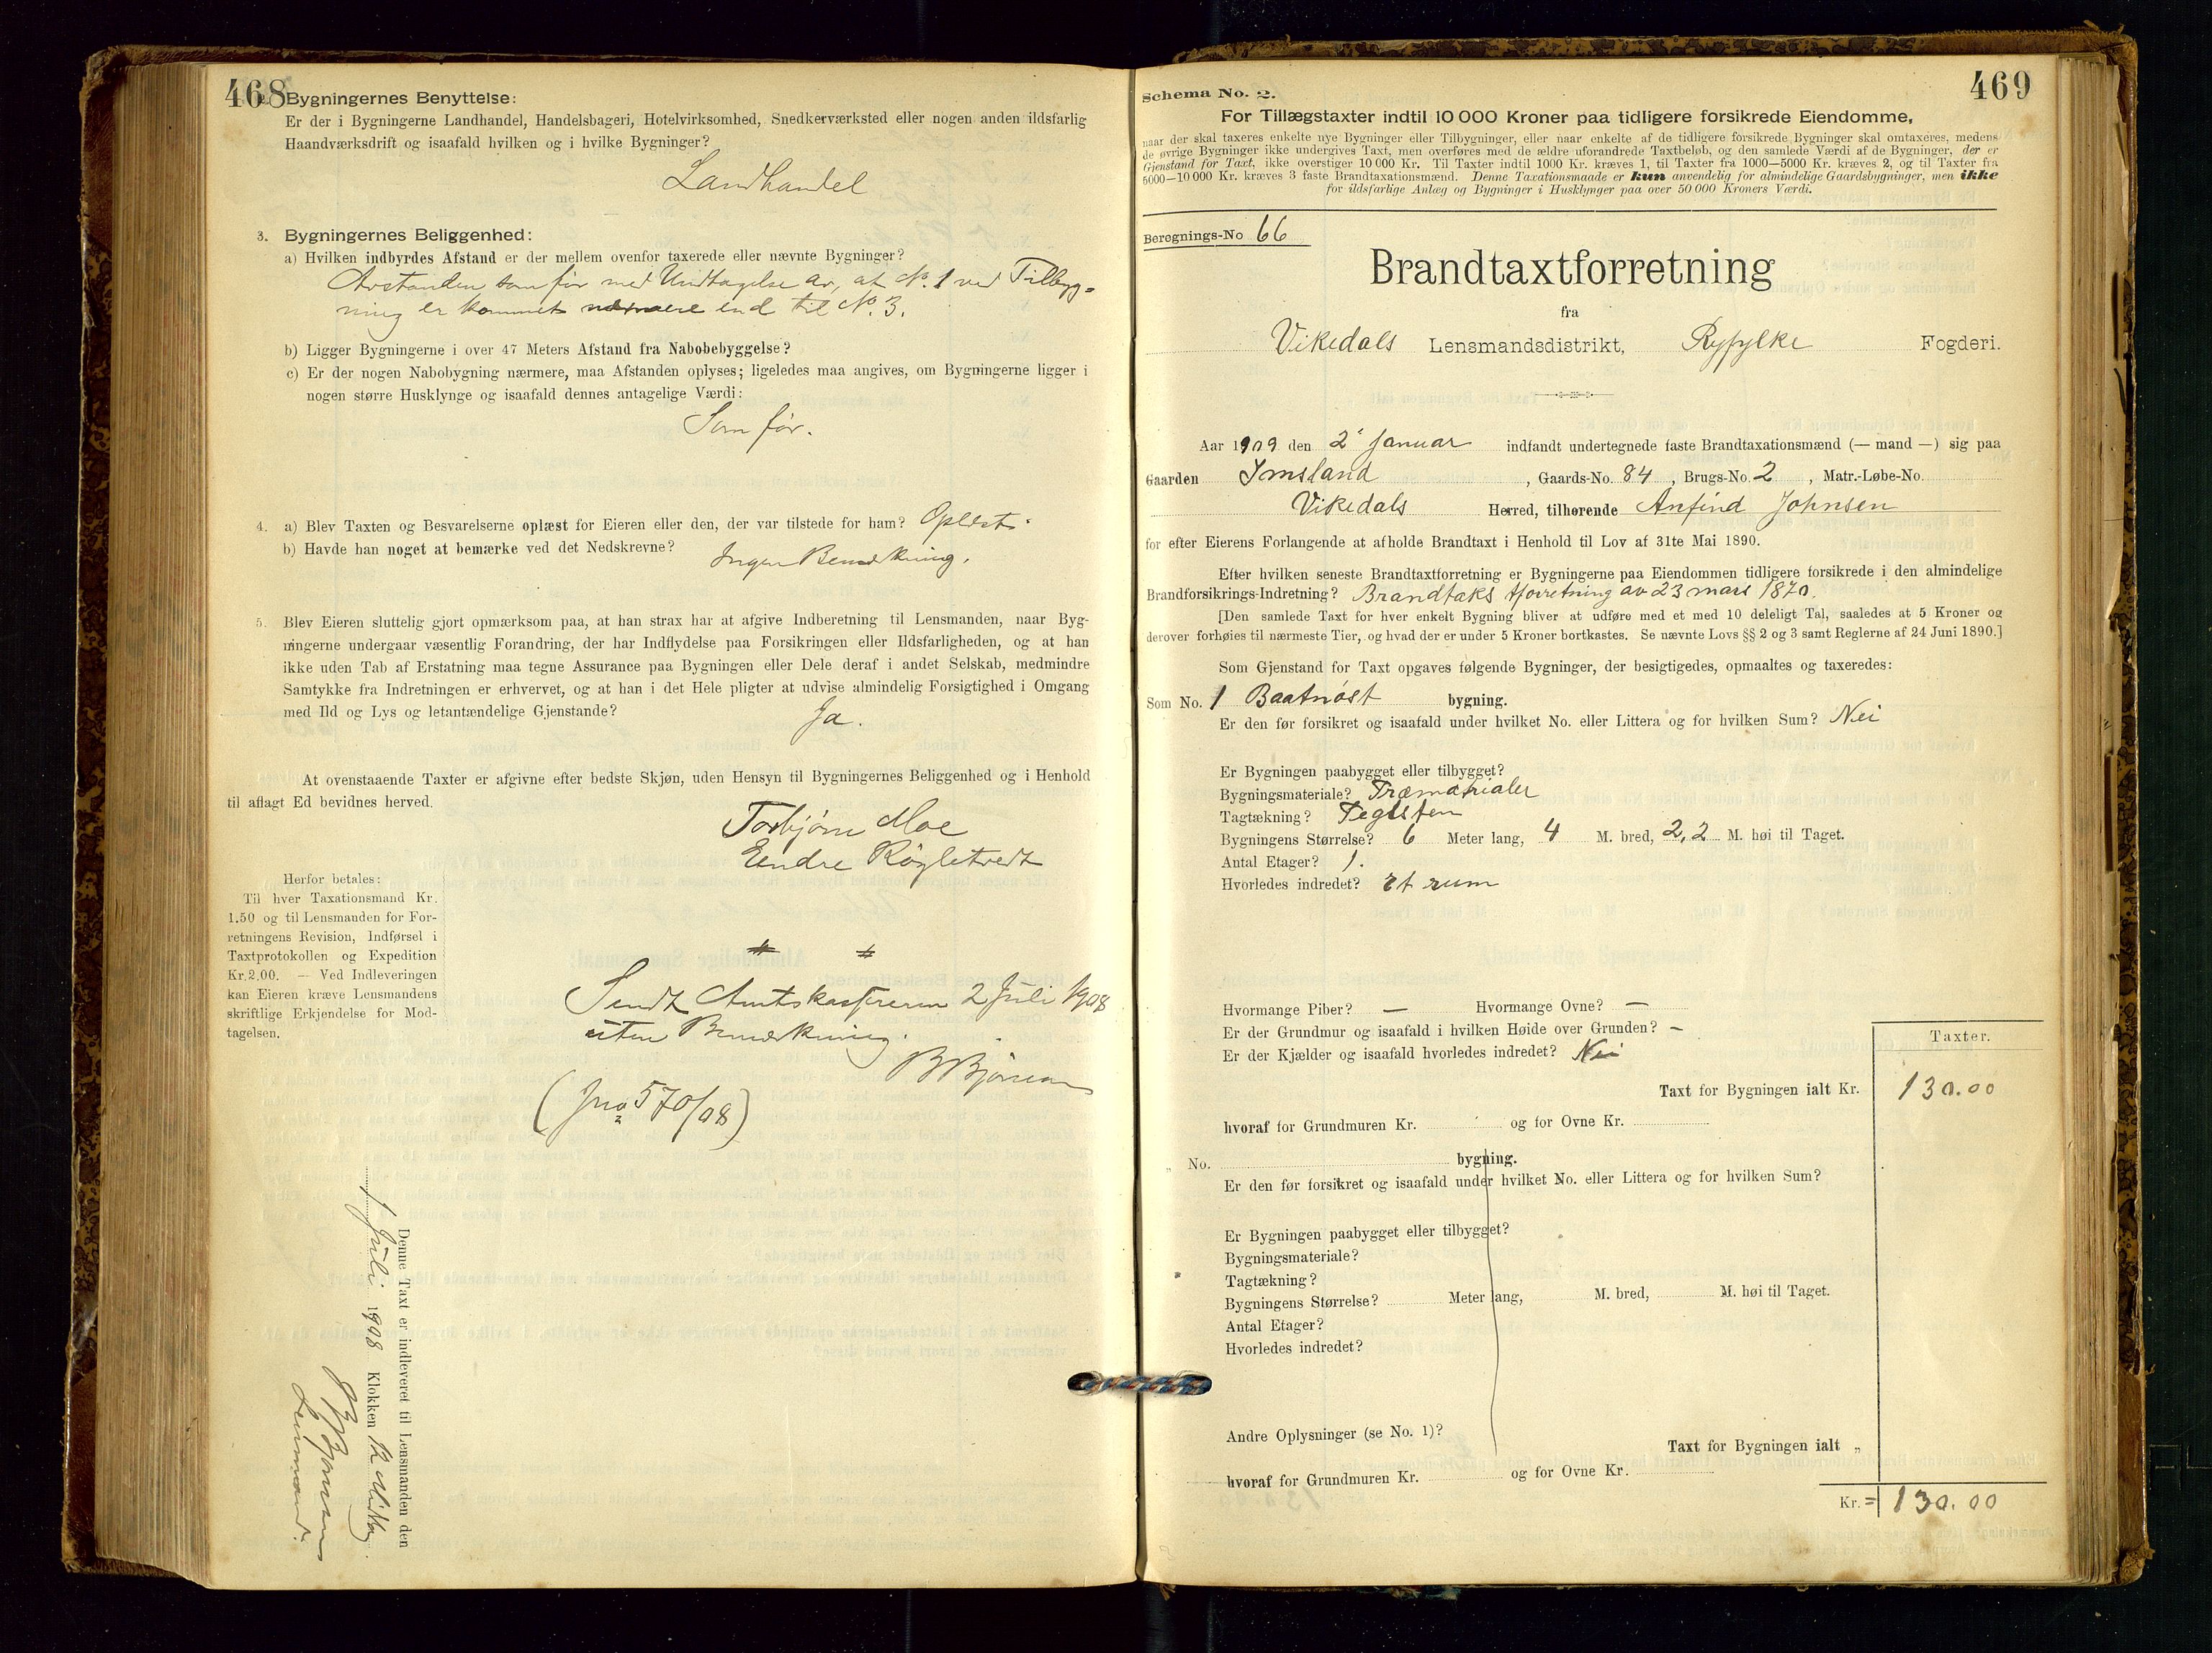 468
Bygningernes Benyttelse:
Er der i Bygningerne Landhandel, Handelsbageri, Hotelvirksomhed, Snedkerværksted eller nogen anden ildsfarlig
Haandværksdrift og isaafald hvilken og i hvilke Bygninger?
Landhandel
3. Bygningernes Beliggenhed:
a) Hvilken indbyrdes Afstand er der mellem ovenfor taxerede eller nævnte Bygninger?
Avstanden som før med Undtagelse av, at No. 1 ved Tilbyg=
ning er kommet nærmere end til No. 3.
b) Ligger Bygningerne i over 47 Meters Afstand fra Nabobebyggelse?
c) Er der nogen Nabobygning nærmere, maa Afstanden oplyses; ligeledes maa angives, om Bygningerne ligger i
nogen større Husklynge og isaafald dennes antagelige Værdi:
Som før.
4. a) Blev Taxten og Besvarelserne oplæst for Eieren eller den, der var tilstede for ham? Oplæst.
b) Havde han noget at bemærke ved det Nedskrevne? Ingen Bemærkning.
5. Blev Eieren sluttelig gjort opmærksom paa, at han strax har at afgive Indberetning til Lensmanden, naar Byg-
ningerne undergaar væsentlig Forandring, der har Indflydelse paa Forsikringen eller Ildsfarligheden, og at han
ikke uden Tab af Erstatning maa tegne Assurance paa Bygningen eller Dele deraf i andet Selskab, medmindre
Samtykke fra Indretningen er erhvervet, og at han i det Hele pligter at udvise almindelig Forsigtighed i Omgang
med Ild og Lys og letantændelige Gjenstande? Ja.
At ovenstaaende Taxter er afgivne efter bedste Skjøn, uden Hensyn til Bygningernes Beliggenhed og i Henhold
til aflagt Ed bevidnes herved.
Torbjørn Moe
Endre Røgletvedt
Herfor betales:
Til hver Taxationsmand Kr.
1.50 og til Lensmanden for For-
retningens Revision, Indførsel i
Taxtprotokollen og Expedition
Kr. 2.00. — Ved Indleveringen
kan Eieren kræve Lensmandens
skriftlige Erkjendelse for Mod-
tagelsen.
# #
Sendt Amtskassereren 2 Juli 1908
uten Bemærkning.
B Bjørnsen
(Jno 570/08)
Denne Taxt er indleveret til Lensmanden den
1 Juli 1908 Klokken 12 Middag.
B Bjørnsen
Lensmand.
469
Schema No. 2.
For Tillægstaxter indtil 10 000 Kroner paa tidligere forsikrede Eiendomme,
naar der skal taxeres enkelte nye Bygninger eller Tilbygninger, eller naar enkelte af de tidligere forsikrede Bygninger skal omtaxeres, medens
de øvrige Bygninger ikke undergives Taxt, men overføres med de ældre uforandrede Taxtbeløb, og den samlede Værdi af de Bygninger, der er
Gjenstand for Taxt, ikke overstiger 10 000 Kr. Til Taxter indtil 1000 Kr. kræves 1, til Taxter fra 1000—5000 Kr. kræves 2, og til Taxter fra
5000—10 000 Kr. kræves 3 faste Brandtaxationsmænd. Denne Taxationsmaade er kun anvendelig for almindelige Gaardsbygninger, men ikke
for ildsfarlige Anlæg og Bygninger i Husklynger paa over 50 000 Kroners Værdi.
Beregnings-No 66
Brandtaxtforretning
fra
Vikedals Lensmandsdistrikt, Ryfylke Fogderi.
Aar 1909 den 2' Januar indfandt undertegnede faste Brandtaxationsmænd (— mand —) sig paa
Gaarden Imsland, Gaards-No. 84, Brugs-No. 2, Matr.-Løbe-No.
Vikedals Herred, tilhørende Anfind Johnsen
for efter Eierens Forlangende at afholde Brandtaxt i Henhold til Lov af 31te Mai 1890.
Efter hvilken seneste Brandtaxtforretning er Bygningerne paa Eiendommen tidligere forsikrede i den almindelige
Brandforsikrings-Indretning? Brandtakstforretning av 23 mars 1870.
[Den samlede Taxt for hver enkelt Bygning bliver at udføre med et med 10 deleligt Tal, saaledes at 5 Kroner og
derover forhøies til nærmeste Tier, og hvad der er under 5 Kroner bortkastes. Se nævnte Lovs §§ 2 og 3 samt Reglerne af 24 Juni 1890.]
Som Gjenstand for Taxt opgaves følgende Bygninger, der besigtigedes, opmaaltes og taxeredes:
Som No. 1 Baatnøst bygning.
Er den før forsikret og isaafald under hvilket No. eller Littera og for hvilken Sum? Nei
Er Bygningen paabygget eller tilbygget?
Bygningsmateriale? Træmatrialer
Tagtækning? Teglsten
Bygningens Størrelse? 6 Meter lang, 4 M. bred, 2,2 M. høi til Taget.
Antal Etager? 1.
Hvorledes indredet? et rum
Hvormange Piber? — Hvormange Ovne? —
Er der Grundmur og isaafald i hvilken Høide over Grunden? —
Er der Kjælder og isaafald hvorledes indredet? Nei
Taxter.
Taxt for Bygningen ialt Kr. 130.00
hvoraf for Grundmuren Kr. og for Ovne Kr.
„ No. bygning.
Er den før forsikret og isaafald under hvilket No. eller Littera og for hvilken Sum?
Er Bygningen paabygget eller tilbygget?
Bygningsmateriale?
Tagtækning?
Bygningens Størrelse? Meter lang, M. bred, M. høi til Taget.
Antal Etager?
Hvorledes indredet?
Andre Oplysninger (se No. 1)?
Taxt for Bygningen ialt „
hvoraf for Grundmuren Kr. og for Ovne Kr.
Kr. = 130.00